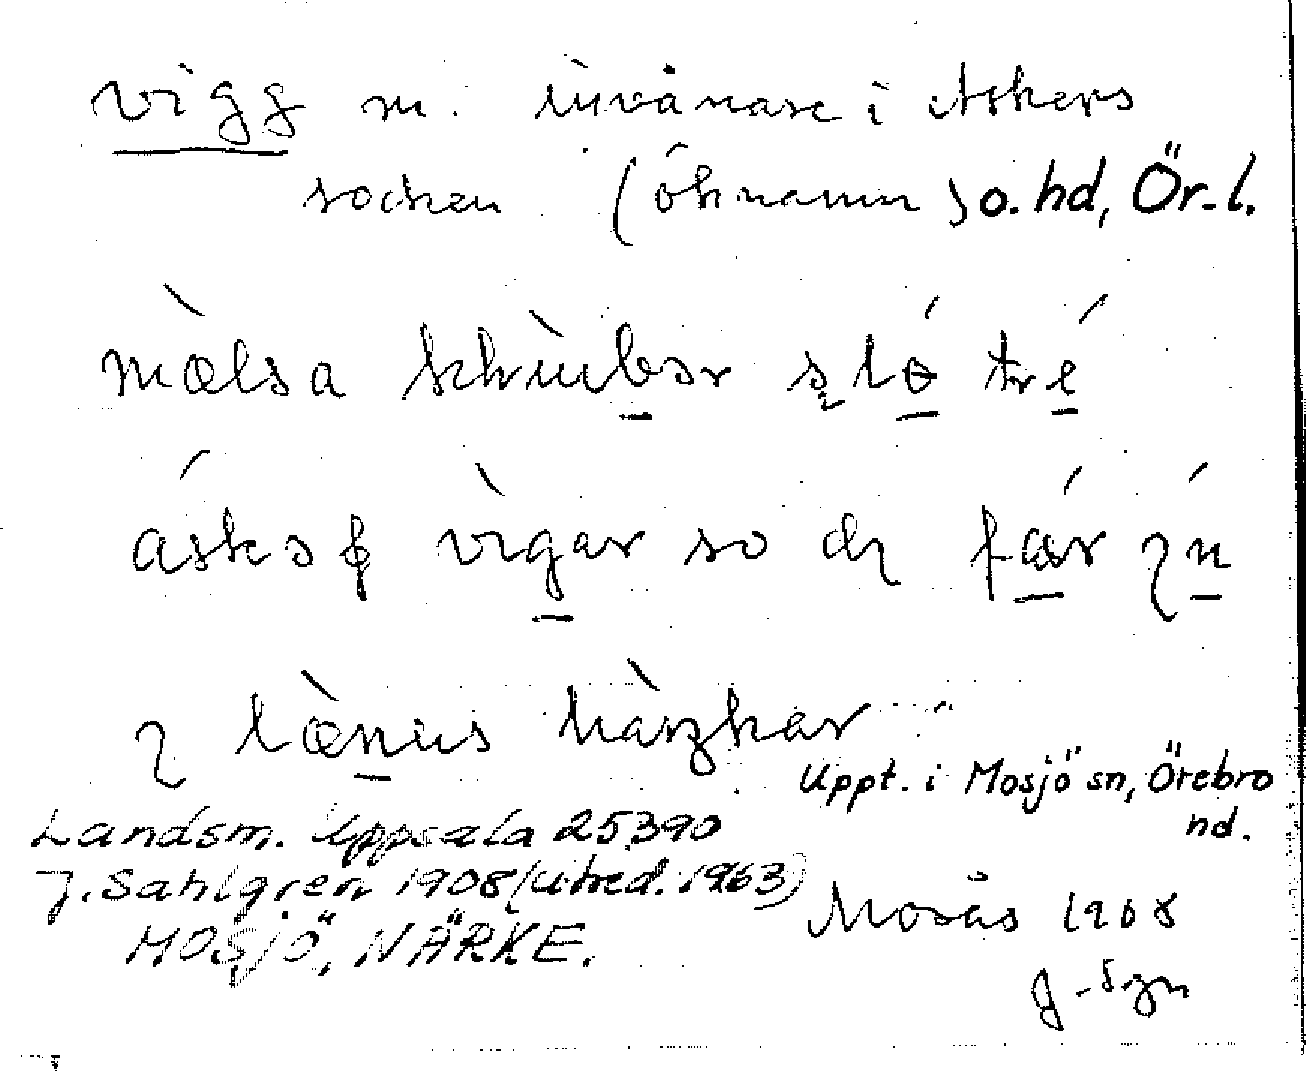 vigg m. invånare i Askers
socken (öknamn) o. hd, Ör. l.
mæ̀lsa skrùbər slǿ tré
áskəʂ vìgar so dɳ fǽr ɿń
ɿ læ̀nus hàɿkar
Uppt. i Mosjö sn, Örebro
hd.
Landsm. Uppsala 25390
J. Sahlgren 1908 (utred. 1963)
MOSJÖ, NÄRKE.
Mosås 1908
J-Sgn